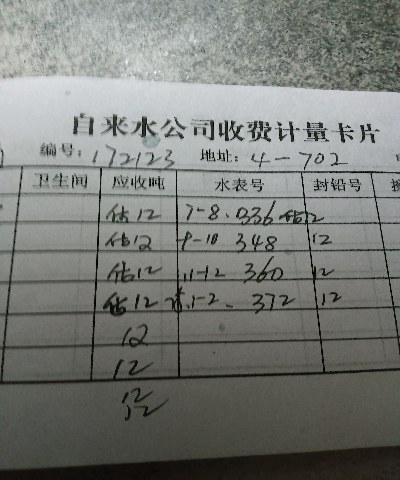 自来水公司收费计量卡片
编号: 172123 地址: 4-702
卫生间 应收吨 水表号 封铅号
估12 7-8. 336 估12
估12 9-10 348 12
估12 11-12 360 12
估12 1-2. 372 12
12
12
12
12